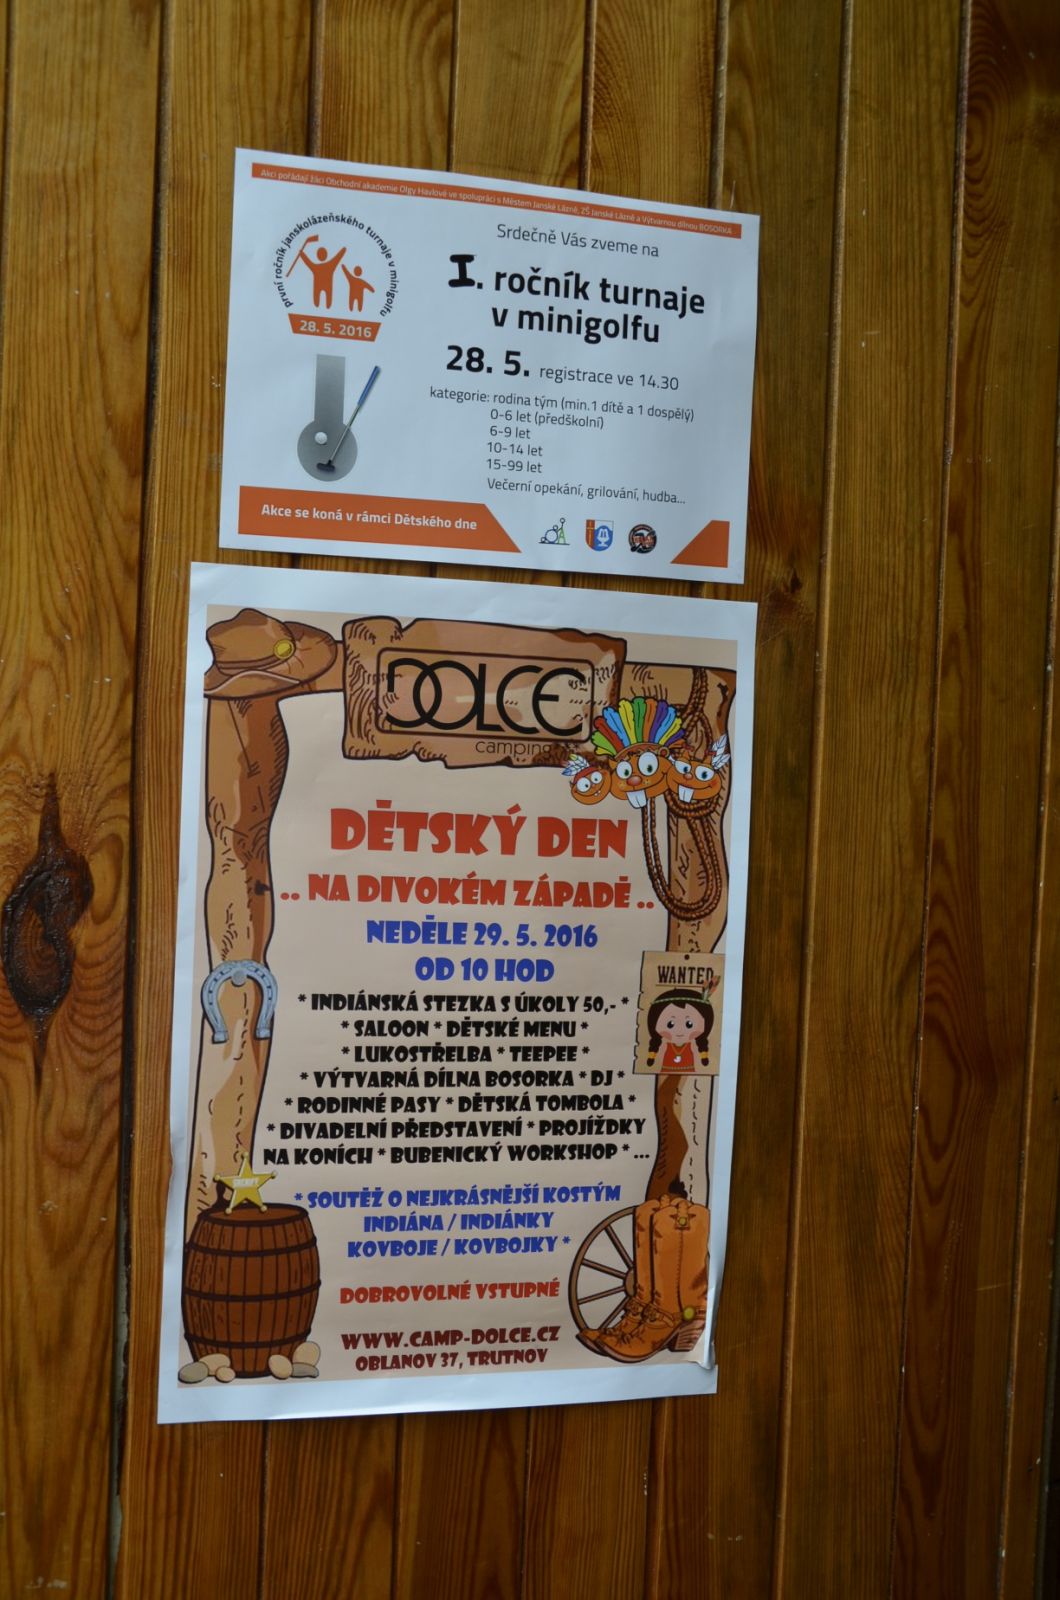 Akci pořádají žáci Obchodní akademie Olgy Havlové ve spolupráci s Městem Janské Lázně, ZŠ Janské Lázně a Výtvarnou dílnou BOSORKA
první ročník janskolázeňského turnaje v minigolfu
28. 5. 2016
Srdečně Vás zveme na
I. ročník turnaje
v minigolfu
28. 5. registrace ve 14.30
kategorie: rodina tým (min.1 dítě a 1 dospělý)
0-6 let (předškolní)
6-9 let
10-14 let
15-99 let
Večerní opekání, grilování, hudba...
Akce se koná v rámci Dětského dne
DOLCE
camping
DĚTSKÝ DEN
.. NA DIVOKÉM ZÁPADĚ ..
NEDĚLE 29. 5. 2016
OD 10 HOD
WANTED
* INDIÁNSKÁ STEZKA S ÚKOLY 50,- *
* SALOON * DĚTSKÉ MENU *
* LUKOSTŘELBA * TEEPEE *
* VÝTVARNÁ DÍLNA BOSORKA * DJ *
* RODINNÉ PASY * DĚTSKÁ TOMBOLA *
* DIVADELNÍ PŘEDSTAVENÍ * PROJÍŽDKY
NA KONÍCH * BUBENICKÝ WORKSHOP * ...
SHERIFF
* SOUTĚŽ O NEJKRÁSNĚJŠÍ KOSTÝM
INDIÁNA / INDIÁNKY
KOVBOJE / KOVBOJKY *
DOBROVOLNÉ VSTUPNÉ
WWW.CAMP-DOLCE.CZ
OBLANOV 37, TRUTNOV